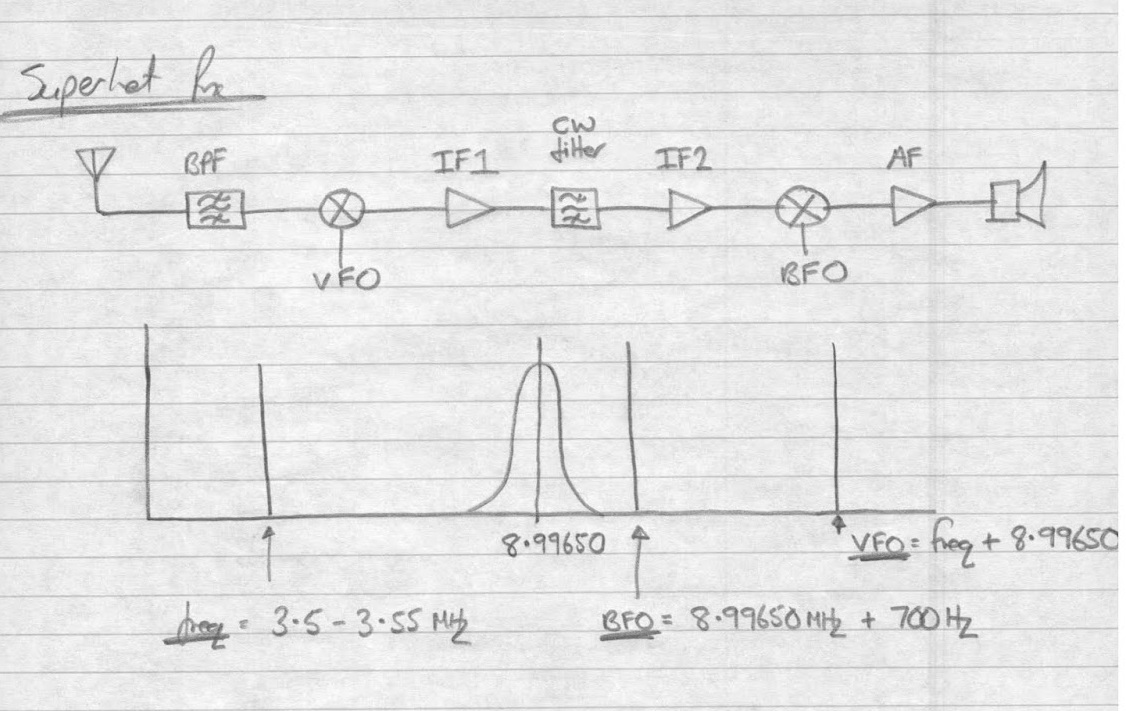 Superhet Rx
BPF
IF1
CW
filter
IF2
AF
VFO
BFO
8.99650
VFO = freq + 8.99650
freq = 3.5 - 3.55 MHz
BFO = 8.99650 MHz + 700 Hz